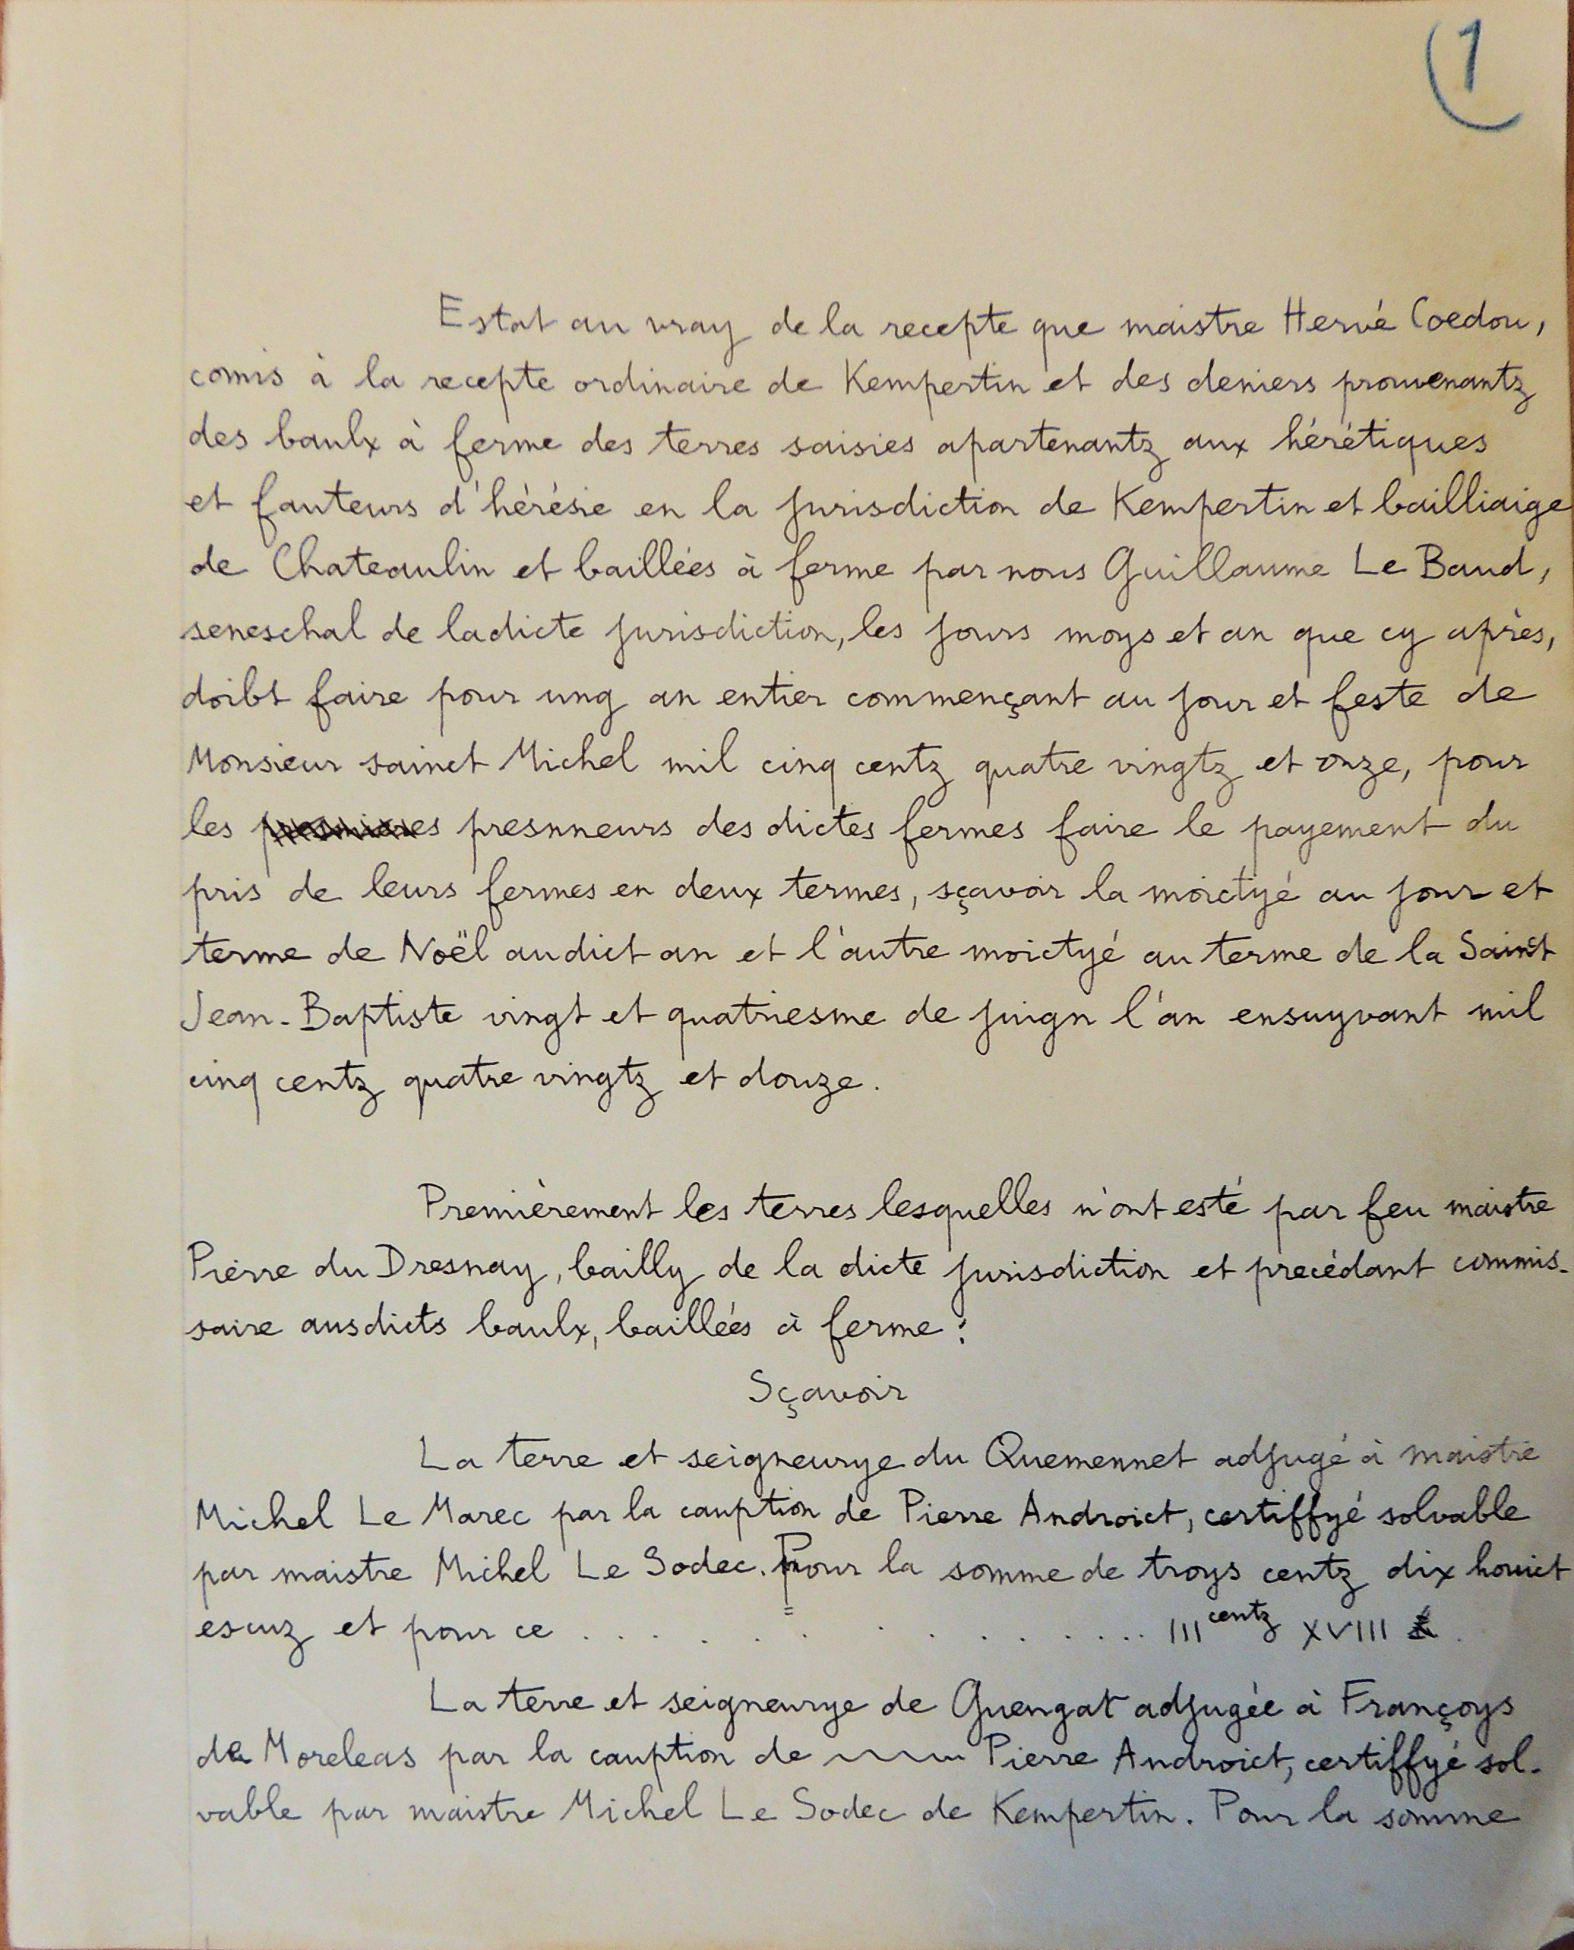 1
Estat au vray de la recepte que maistre Hervé Coedou,
comis à la recepte ordinaire de Kempertin et des deniers prouvenantz
des baulx à ferme des terres saisies apartenantz aux hérétiques
et fauteurs d'hérésie en la jurisdiction de Kempertin et bailliaige
de Chateaulin et baillées à ferme par nous Guillaume Le Baud,
seneschal de ladicte jurisdiction, les jours moys et an que cy après,
doibt faire pour ung an entier commençant au jour et feste de
Monsieur sainct Michel mil cinq centz quatre vingtz et onze, pour
les presnneurs des dictes fermes faire le payement du
pris de leurs fermes en deux termes, sçavoir la moictyé au jour et
terme de Noël audict an et l'autre moictyé au terme de la Sainct
Jean-Baptiste vingt et quatriesme de juign l'an ensuyvant mil
cinq centz quatre vingtz et douze.
Premièrement les terres lesquelles n'ont esté par feu maistre
Pierre du Dresnay, bailly de la dicte jurisdiction et precédant commis-
saire ausdicts baulx, baillées à ferme :
Sçavoir
La terre et seigneurye du Quemennet adjugé à maistre
Michel Le Marec par la cauption de Pierre Androict, certiffyé solvable
par maistre Michel Le Sodec. Pour la somme de troys centz dix houict
escuz et pour ce . . . . . . . . . . . . . . . III centz XVIII
La terre et seigneurye de Guengat adjugée à Françoys
de Moreleas par la cauption de Pierre Androict, certiffyé sol-
vable par maistre Michel Le Sodec de Kempertin. Pour la somme